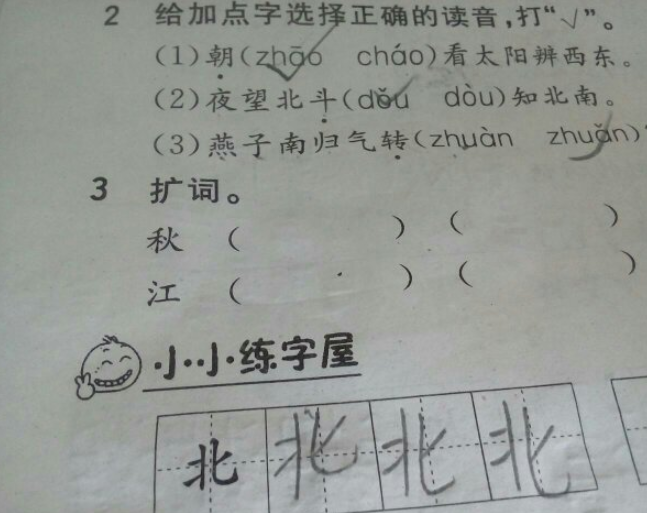 2 给加点字选择正确的读音,打“√”。
(1)朝(zhāo cháo)看太阳辨西东。
(2)夜望北斗(dǒu dòu)知北南。
(3)燕子南归气转(zhuàn zhuǎn)
3 扩词。
秋 ( ) ( )
江 ( ) ( )
小小练字屋
北 北 北 北